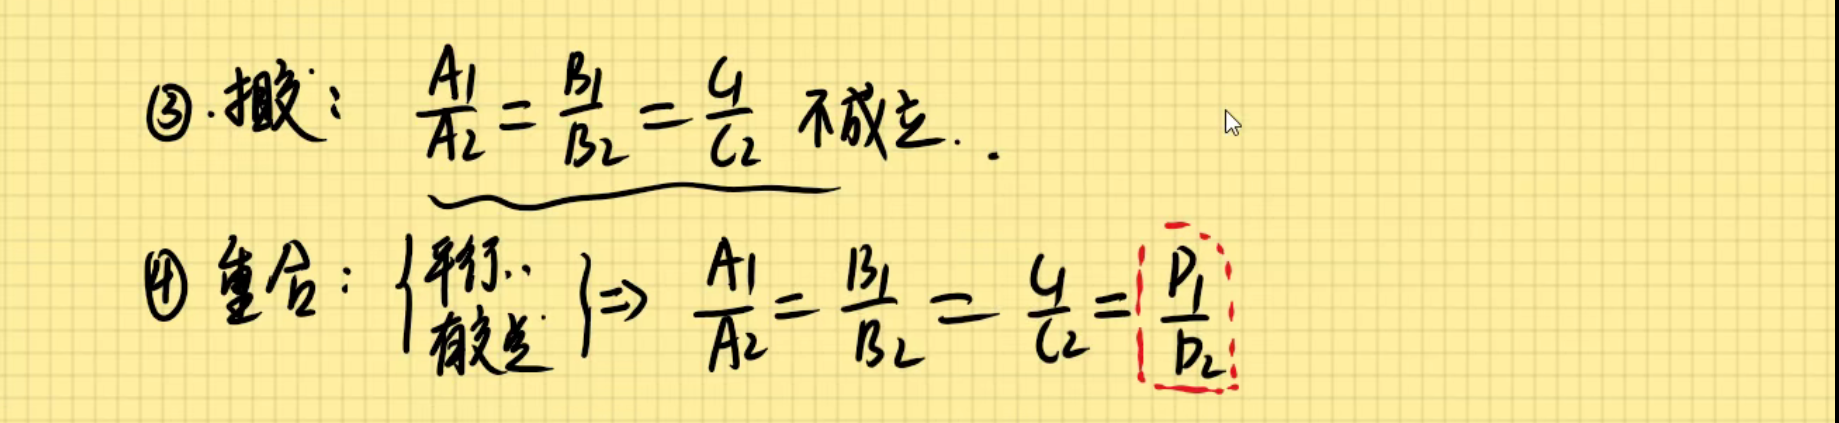 ③. 相交: A₁/A₂ = B₁/B₂ = C₁/C₂ 不成立.
④ 重合: {平行.. 有交点} ⇒ A₁/A₂ = B₁/B₂ = C₁/C₂ = D₁/D₂